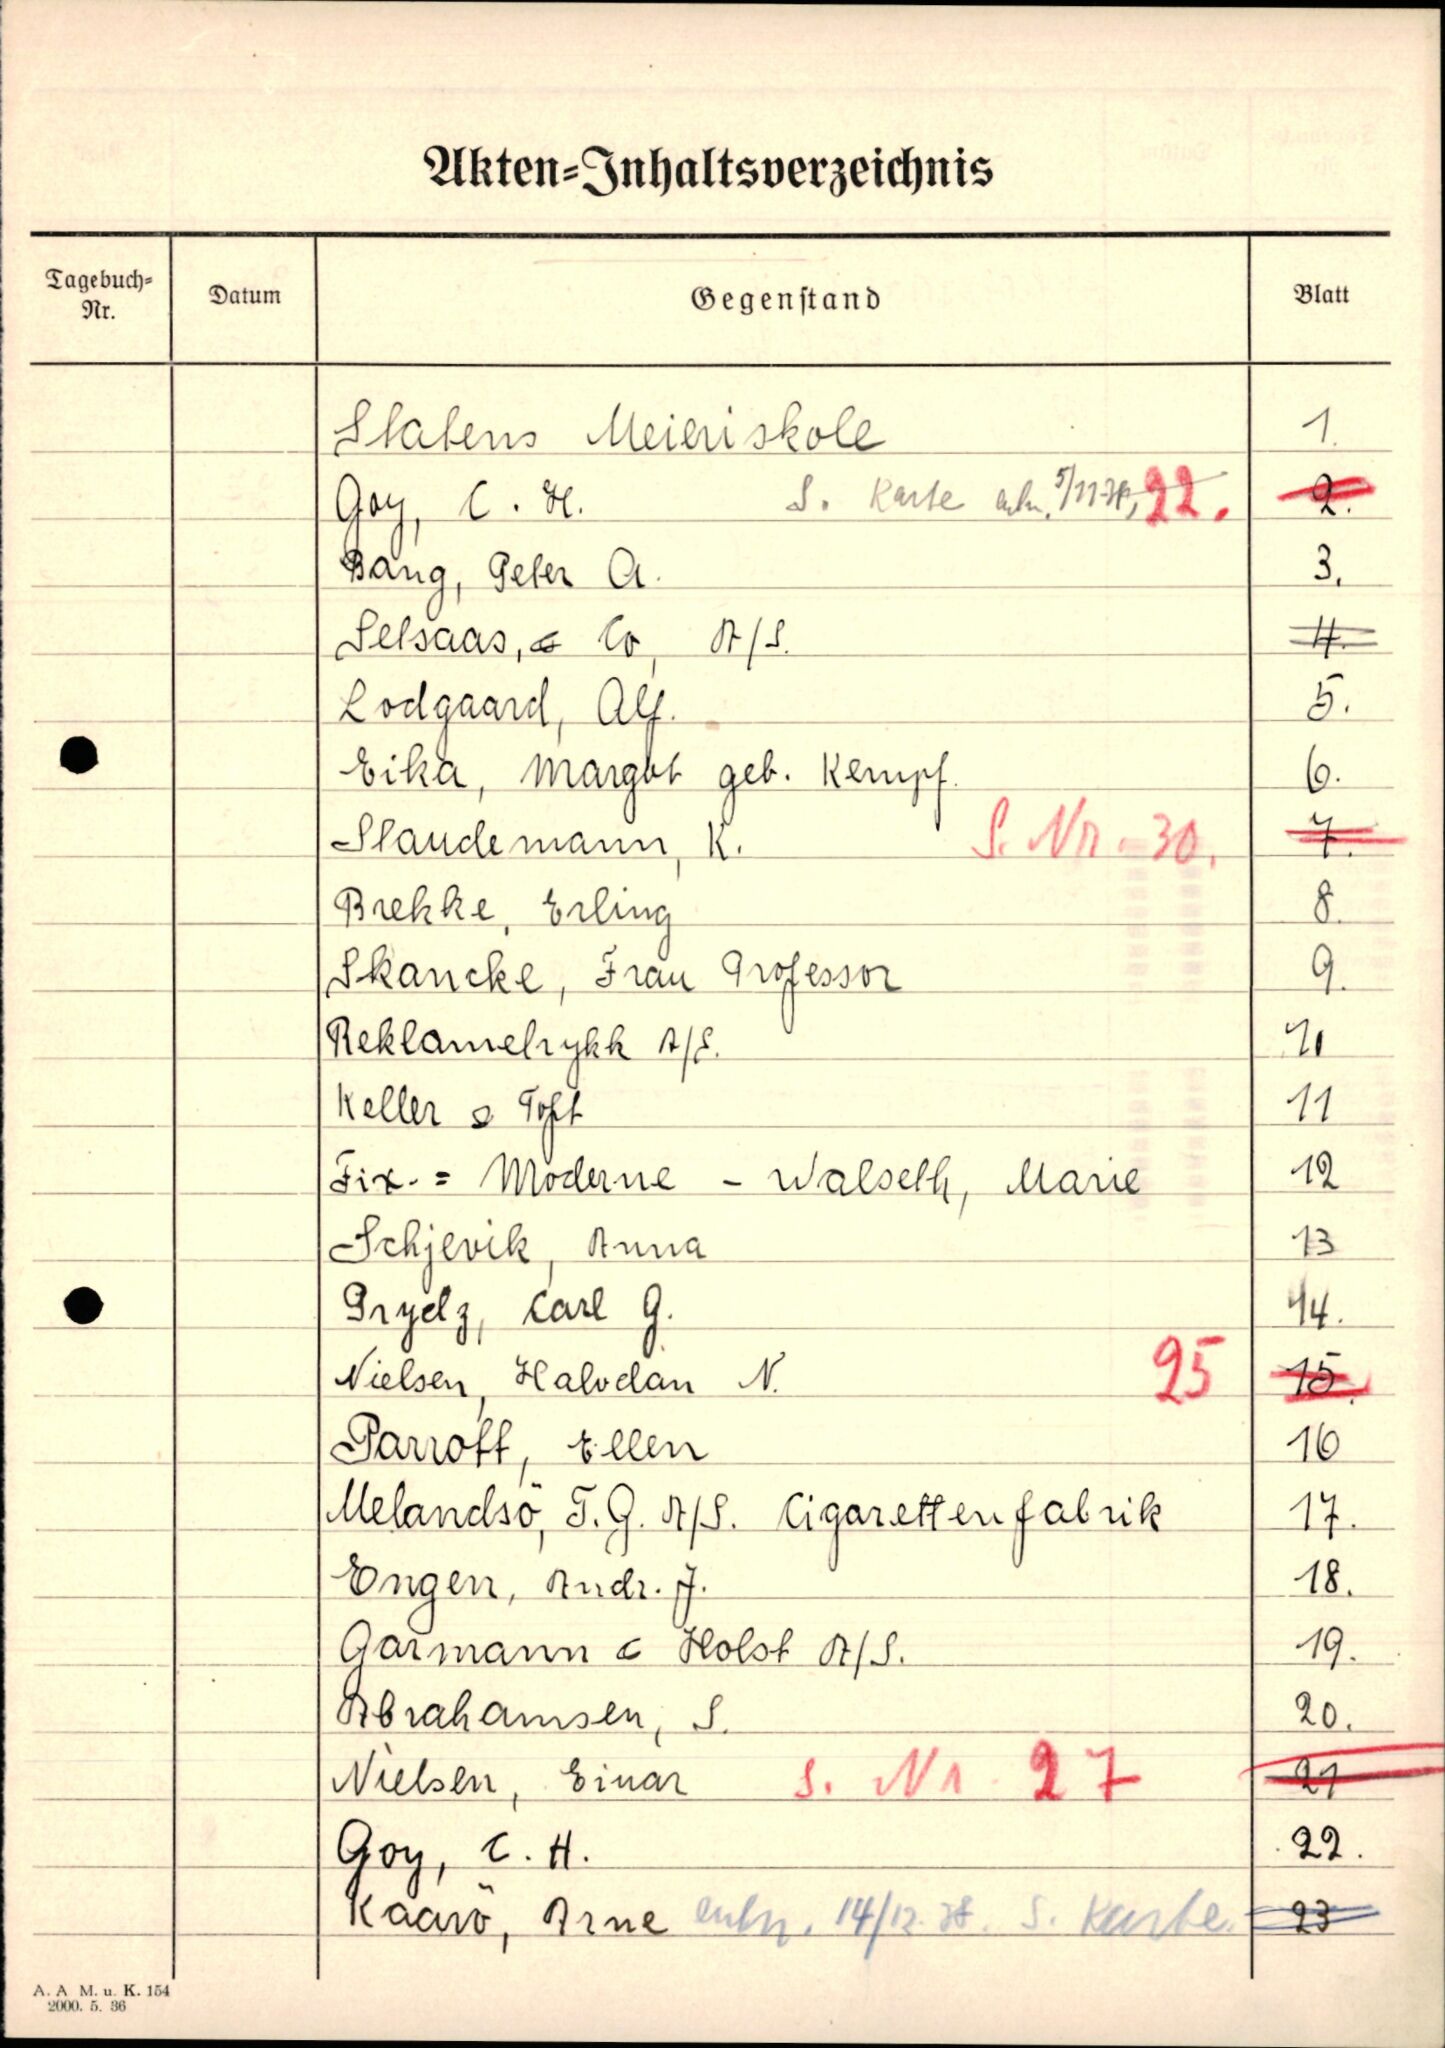 Akten-Inhaltsverzeichnis
Tagebuch-Nr. Datum Gegenstand Blatt
Statens Meieriskole 1.
Goy, C. H. S. Karte entn. 5/11-38, 22. 2.
Bang, Peter A. 3.
Selsaas, & Co, A/S. 4.
Lodgaard, Alf. 5.
Eika, Margot geb. Kempf. 6.
Staudemann, K. S. Nr. 30. 7.
Brekke, Erling 8.
Skancke, Frau Professor 9.
Reklametrykk A/S. 10
Keller & Toft 11
Fix-= Moderne - Walseth, Marie 12
Schjevik, Anna 13
Prydz, Carl G. 14.
Nielsen, Halvdan N. 25 15.
Parrott, Ellen 16
Melandsö, T. G. A/S. Cigarettenfabrik 17.
Engen, Andr. J. 18.
Garmann & Holst A/S. 19.
Abrahamsen, S. 20.
Nielsen, Einar S. Nr. 27 21
Goy, C. H. 22.
Kaarö, Arne entn. 14/12.38. S. Karte. 23
A. A M. u. K. 154
2000. 5. 36